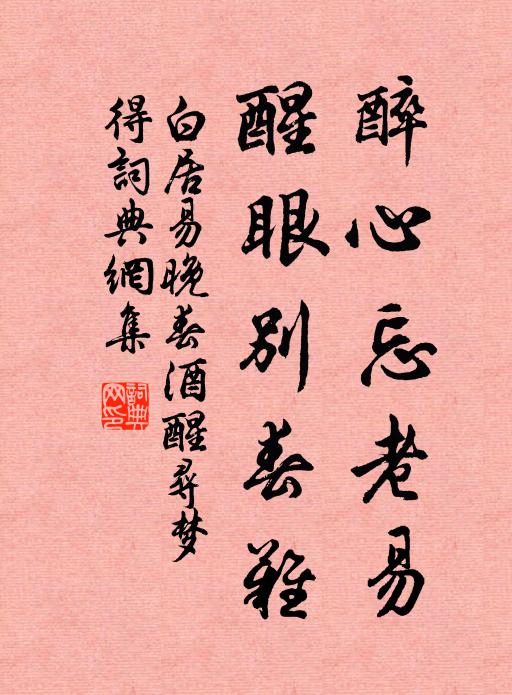 醉心忘老易
醒眼別春難
白居易晚春酒醒尋梦
得詞典網集
詞典
网印